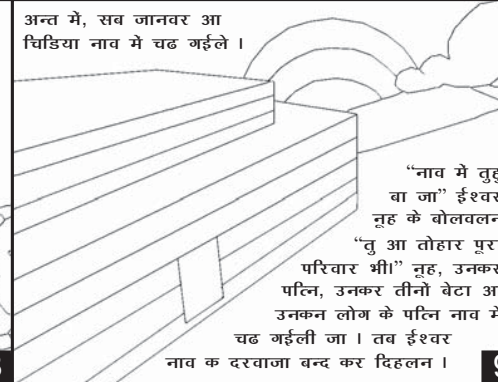 अन्त में, सब जानवर आ
चिडिया नाव में चढ गईले ।
“नाव में तुहु
बा जा” ईश्वर
नूह के बोलवलन
“तु आ तोहार पूरा
परिवार भी।” नूह, उनकर
पत्नि, उनकर तीनो बेटा आ
उनकन लोग के पत्नि नाव में
चढ गईली जा । तब ईश्वर
नाव क दरवाजा बन्द कर दिहलन ।